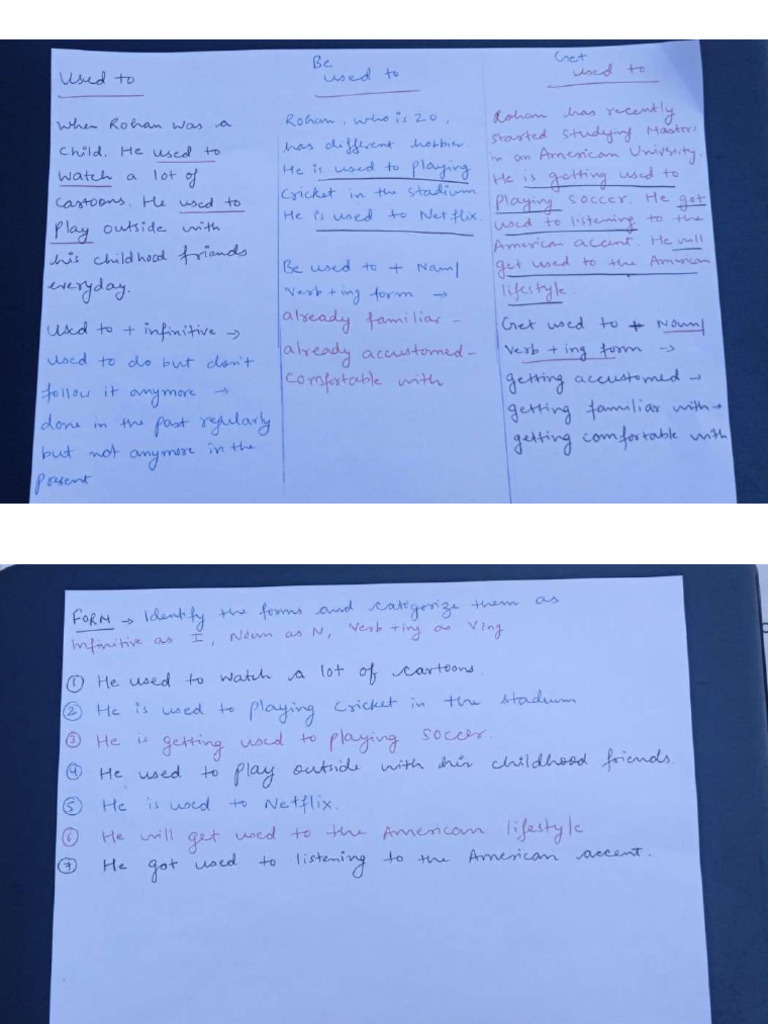 Used to
When Rohan was a
child. He used to
watch a lot of
cartoons. He used to
play outside with
his childhood friends
everyday.
Used to + infinitive →
used to do but don't
follow it anymore →
done in the past regularly
but not anymore in the
present
Be
used to
Rohan, who is 20,
has different hobbies.
He is used to playing
cricket in the stadium
He is used to Netflix.
Be used to + Noun/
Verb + ing form →
already familiar -
already accustomed -
comfortable with
Get
used to
Rohan has recently
started studying Masters
in an American University.
He is getting used to
playing soccer. He got
used to listening to the
American accent. He will
get used to the American
lifestyle.
Get used to + Noun/
Verb + ing form →
getting accustomed →
getting familiar with →
getting comfortable with
FORM → Identify the forms and categorize them as
Infinitive as I, Noun as N, Verb +ing as Ving
① He used to watch a lot of cartoons.
② He is used to playing cricket in the stadium
③ He is getting used to playing soccer.
④ He used to play outside with his childhood friends.
⑤ He is used to Netflix.
⑥ He will get used to the American lifestyle
⑦ He got used to listening to the American accent.